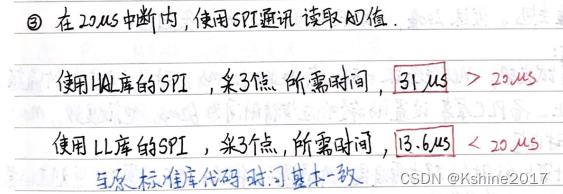 ③ 在20μs中断内,使用SPI通讯 读取AD值.
使用HAL库的SPI ,采3个点 所需时间, 31μs > 20μs
使用LL库的SPI ,采3个点,所需时间, 13.6μs < 20μs
与原标准库代码时间基本一致
CSDN @Kshine2017